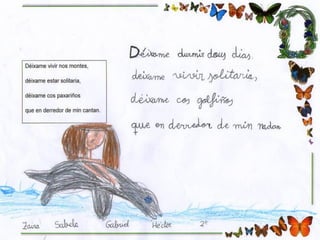 Déixame vivir nos montes,
déixame estar solitaria,
déixame cos paxariños
que en derredor de min cantan.
Déixame durmir dous dias.
deixame vivir solitaria,
déixame cos golfiños
que en derredor de min nadan
D
Zaira Sabela Gabriel Héctor 2º